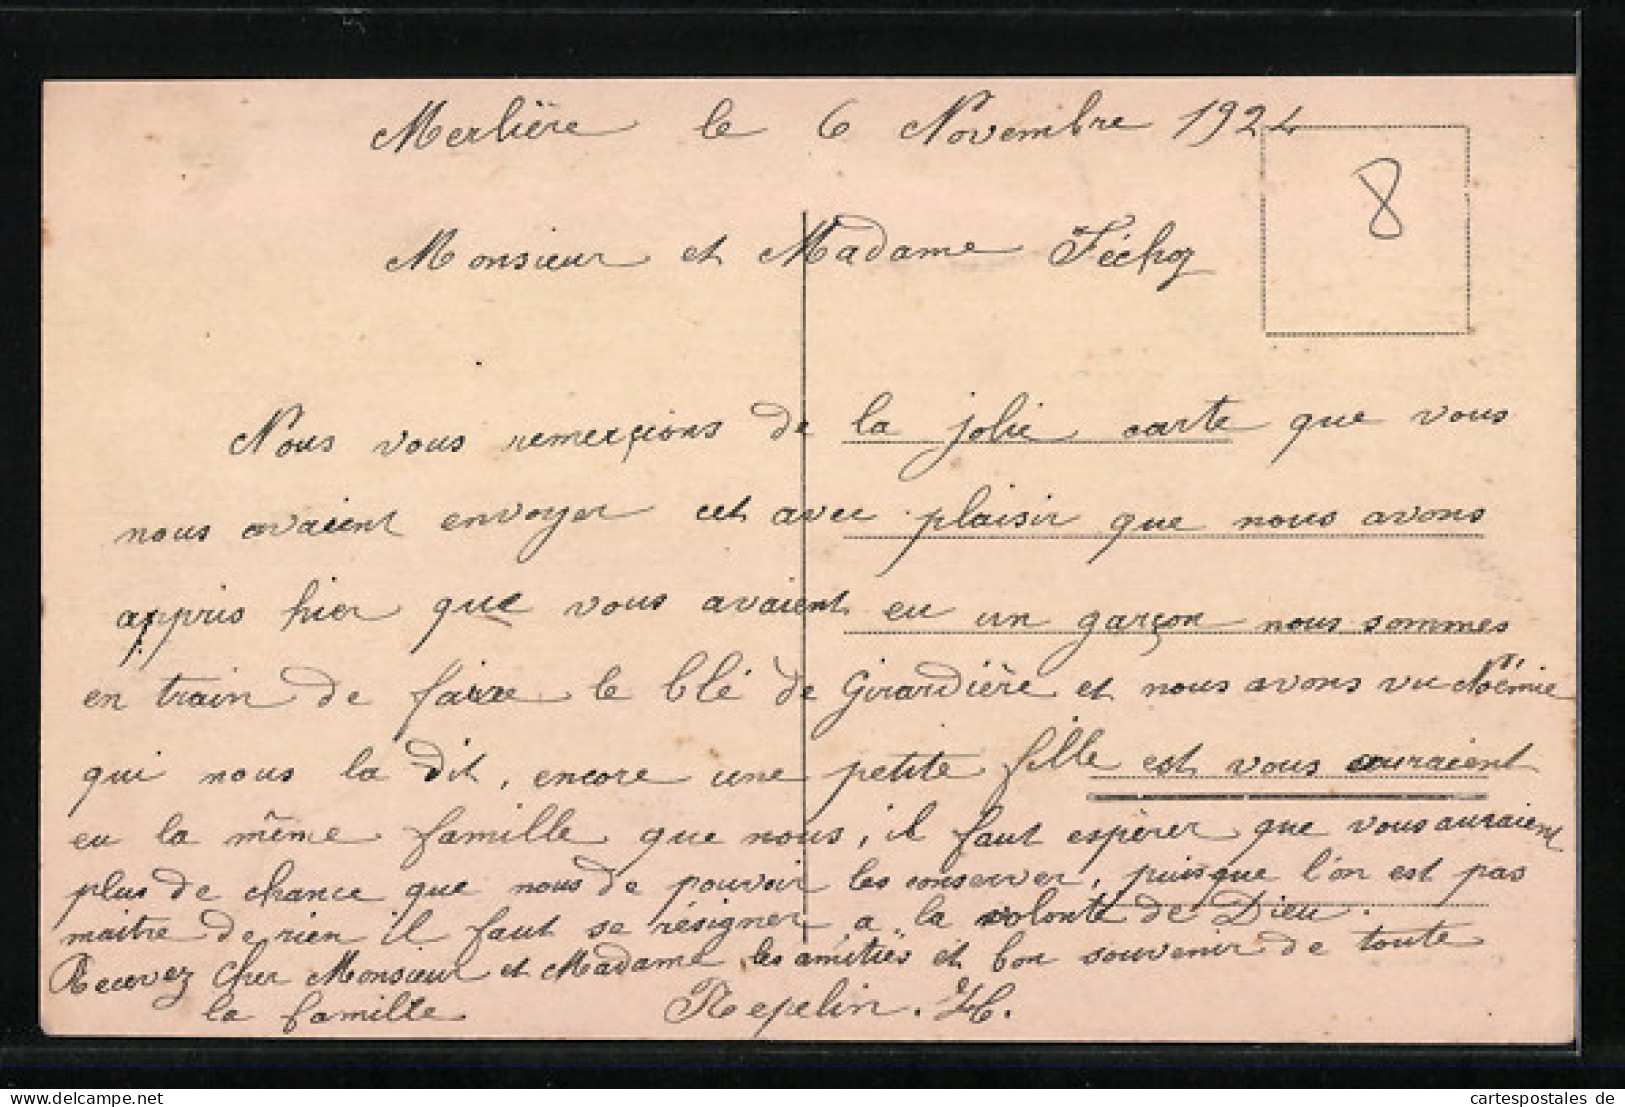 Merlière le 6 Novembre 1924
8
Monsieur et Madame
Nous vous remerçions de la jolie carte que vous
nous avaient envoyer cet avec plaisir que nous avons
appris hier que vous avaient eu un garçon nous sommes
en train de faire le blé de Girardière et nous avons vu Noémie
qui nous la dit, encore une petite fille est vous auraient
eu la même famille que nous, il faut espèrer que vous auraient
plus de chance que nous de pouvoir les conserver, puisque l'on est pas
maitre de rien il faut se résigner a la volonté de Dieu.
Recevez cher Monsieur et Madame les amitiés et bon souvenir de toute
la famille Repelin. H.
www.cartes-postales-delcampe.com
cartespostales de